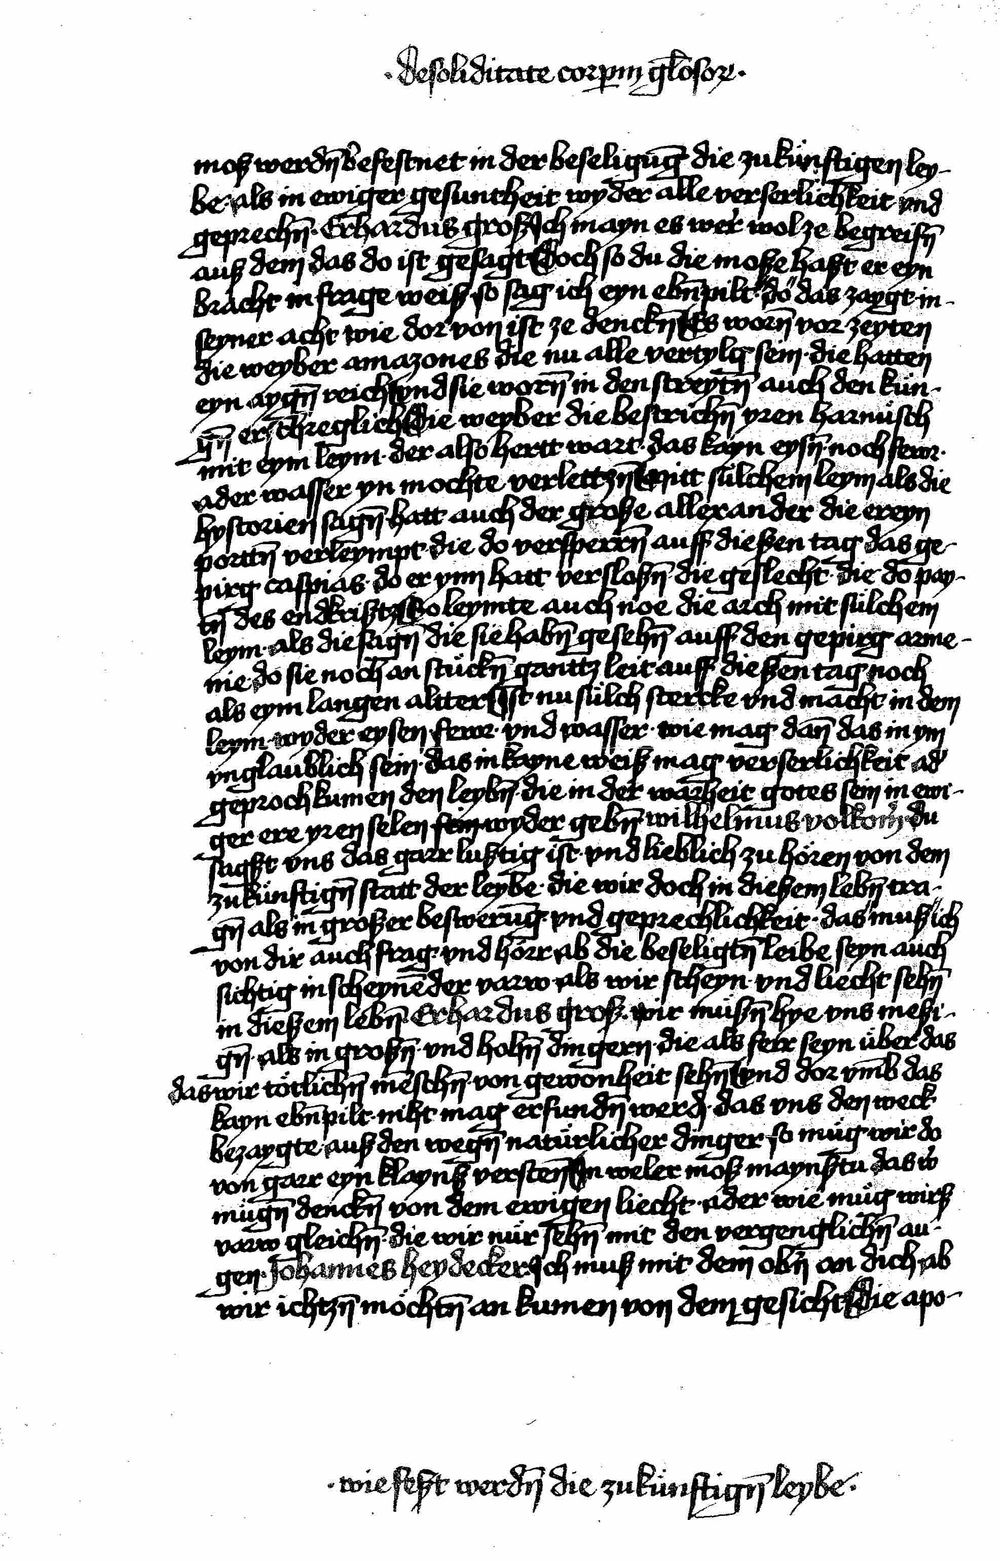 · De soliditate corporum glōsor ·
moß werdn̄ befestnet in der beseligūg die zukünftigen ley-
be · als in ewiger gesuntheit wyder alle verserlichkeit vnd
geprechn̄ · Erhardus groß Ich mayn es wer wol ze begreifn̄
auß dem das do ist gesagt Doch so du die moße haßt er eyn
bracht in frage weiß so sag ich eyn ebn̄pilt · do das zaygt in-
seyner acht wie dor von ist ze denckn̄ Es worn̄ vor zeyten
die weyber amazones die nu alle vertylgt sein · die hatten
eyn aygn̄ reich vnd sie worn̄ in den streytn̄ auch den kün-
gn̄ erschreglich Die weyber die bestrichn̄ yren harnüsch
mit eym leym · der also hertt wart · das kayn eysn̄ noch fewr ·
ader wasser yn mochte verlettzn̄ Mitt sülchem leym als die
hystorien sagn̄ hatt auch der große allexander die ereyn
porttn̄ verleympt · die do versperrn̄ auff dießen tag das ge-
pirg caspias · do er ynn hatt verslossn̄ die geslecht · die do pay-
tn̄ des endkrißtz So leymte auch noe die arch mit sülchem
leym · als die sagn̄ die sie habn̄ gesehn̄ auff den gepirg arme-
nie do sie noch an stückn̄ ganttz leit auff dießen tag noch
als eym langen altter Ist nu sülch stercke vnd macht in dem
leym · wyder eysen fewr · vnd wasser · wie mag dan̄ das in ym
vnglaublich sein · das in kayne weiß mag verserlichkeit ad'
geproch kumen den leybn̄ die in der warheit gotes sein in ewi-
ger ere yren selen sein wyder gebn̄ wilhelmus volkom̄ du
sagst vns das garr lußtig ist · vnd lieblich zu hören von dem
zukünftign̄ statt der leybe · die wir doch in dießem lebn̄ tra-
gn̄ als in großer beswerūg · vnd geprechlichkeit · das muß ich
von dir auch frag · vnd hörr ab die beseligtn̄ leibe seyn auch
sichtig in scheynēder varw · als wir scheyn · vnd liecht sehn̄
in dießem lebn̄ Erhardus groß · wir müßn̄ hye vns meßi-
gn̄ · als in großn̄ · vnd hohn̄ dingern · die als ferr seyn über das
das wir tötlichn̄ menschn̄ · von gewonheit sehn̄ Vnd dor vm̄b das
kayn ebn̄pilt · niht mag erfundn̄ werd · das vns den weck
bezaygte · auß den wegn̄ natürlicher dinger · so müg wir do
von garr eyn klaynß versten̄ In weler moß maynßtu das w'
mügn̄ denckn̄ von dem ewigen liecht · ader wie müg wirß
varw gleichn̄ · die wir nür sehn̄ mit den vergenglichn̄ au-
gen · Johannes heydecker Ich muß mit dem obn̄ an dich ab
wir ichtzn̄ möchtn̄ an kumen von dem gesicht Die apo-
· wie feßt werdn̄ die zukünftign̄ leybe ·